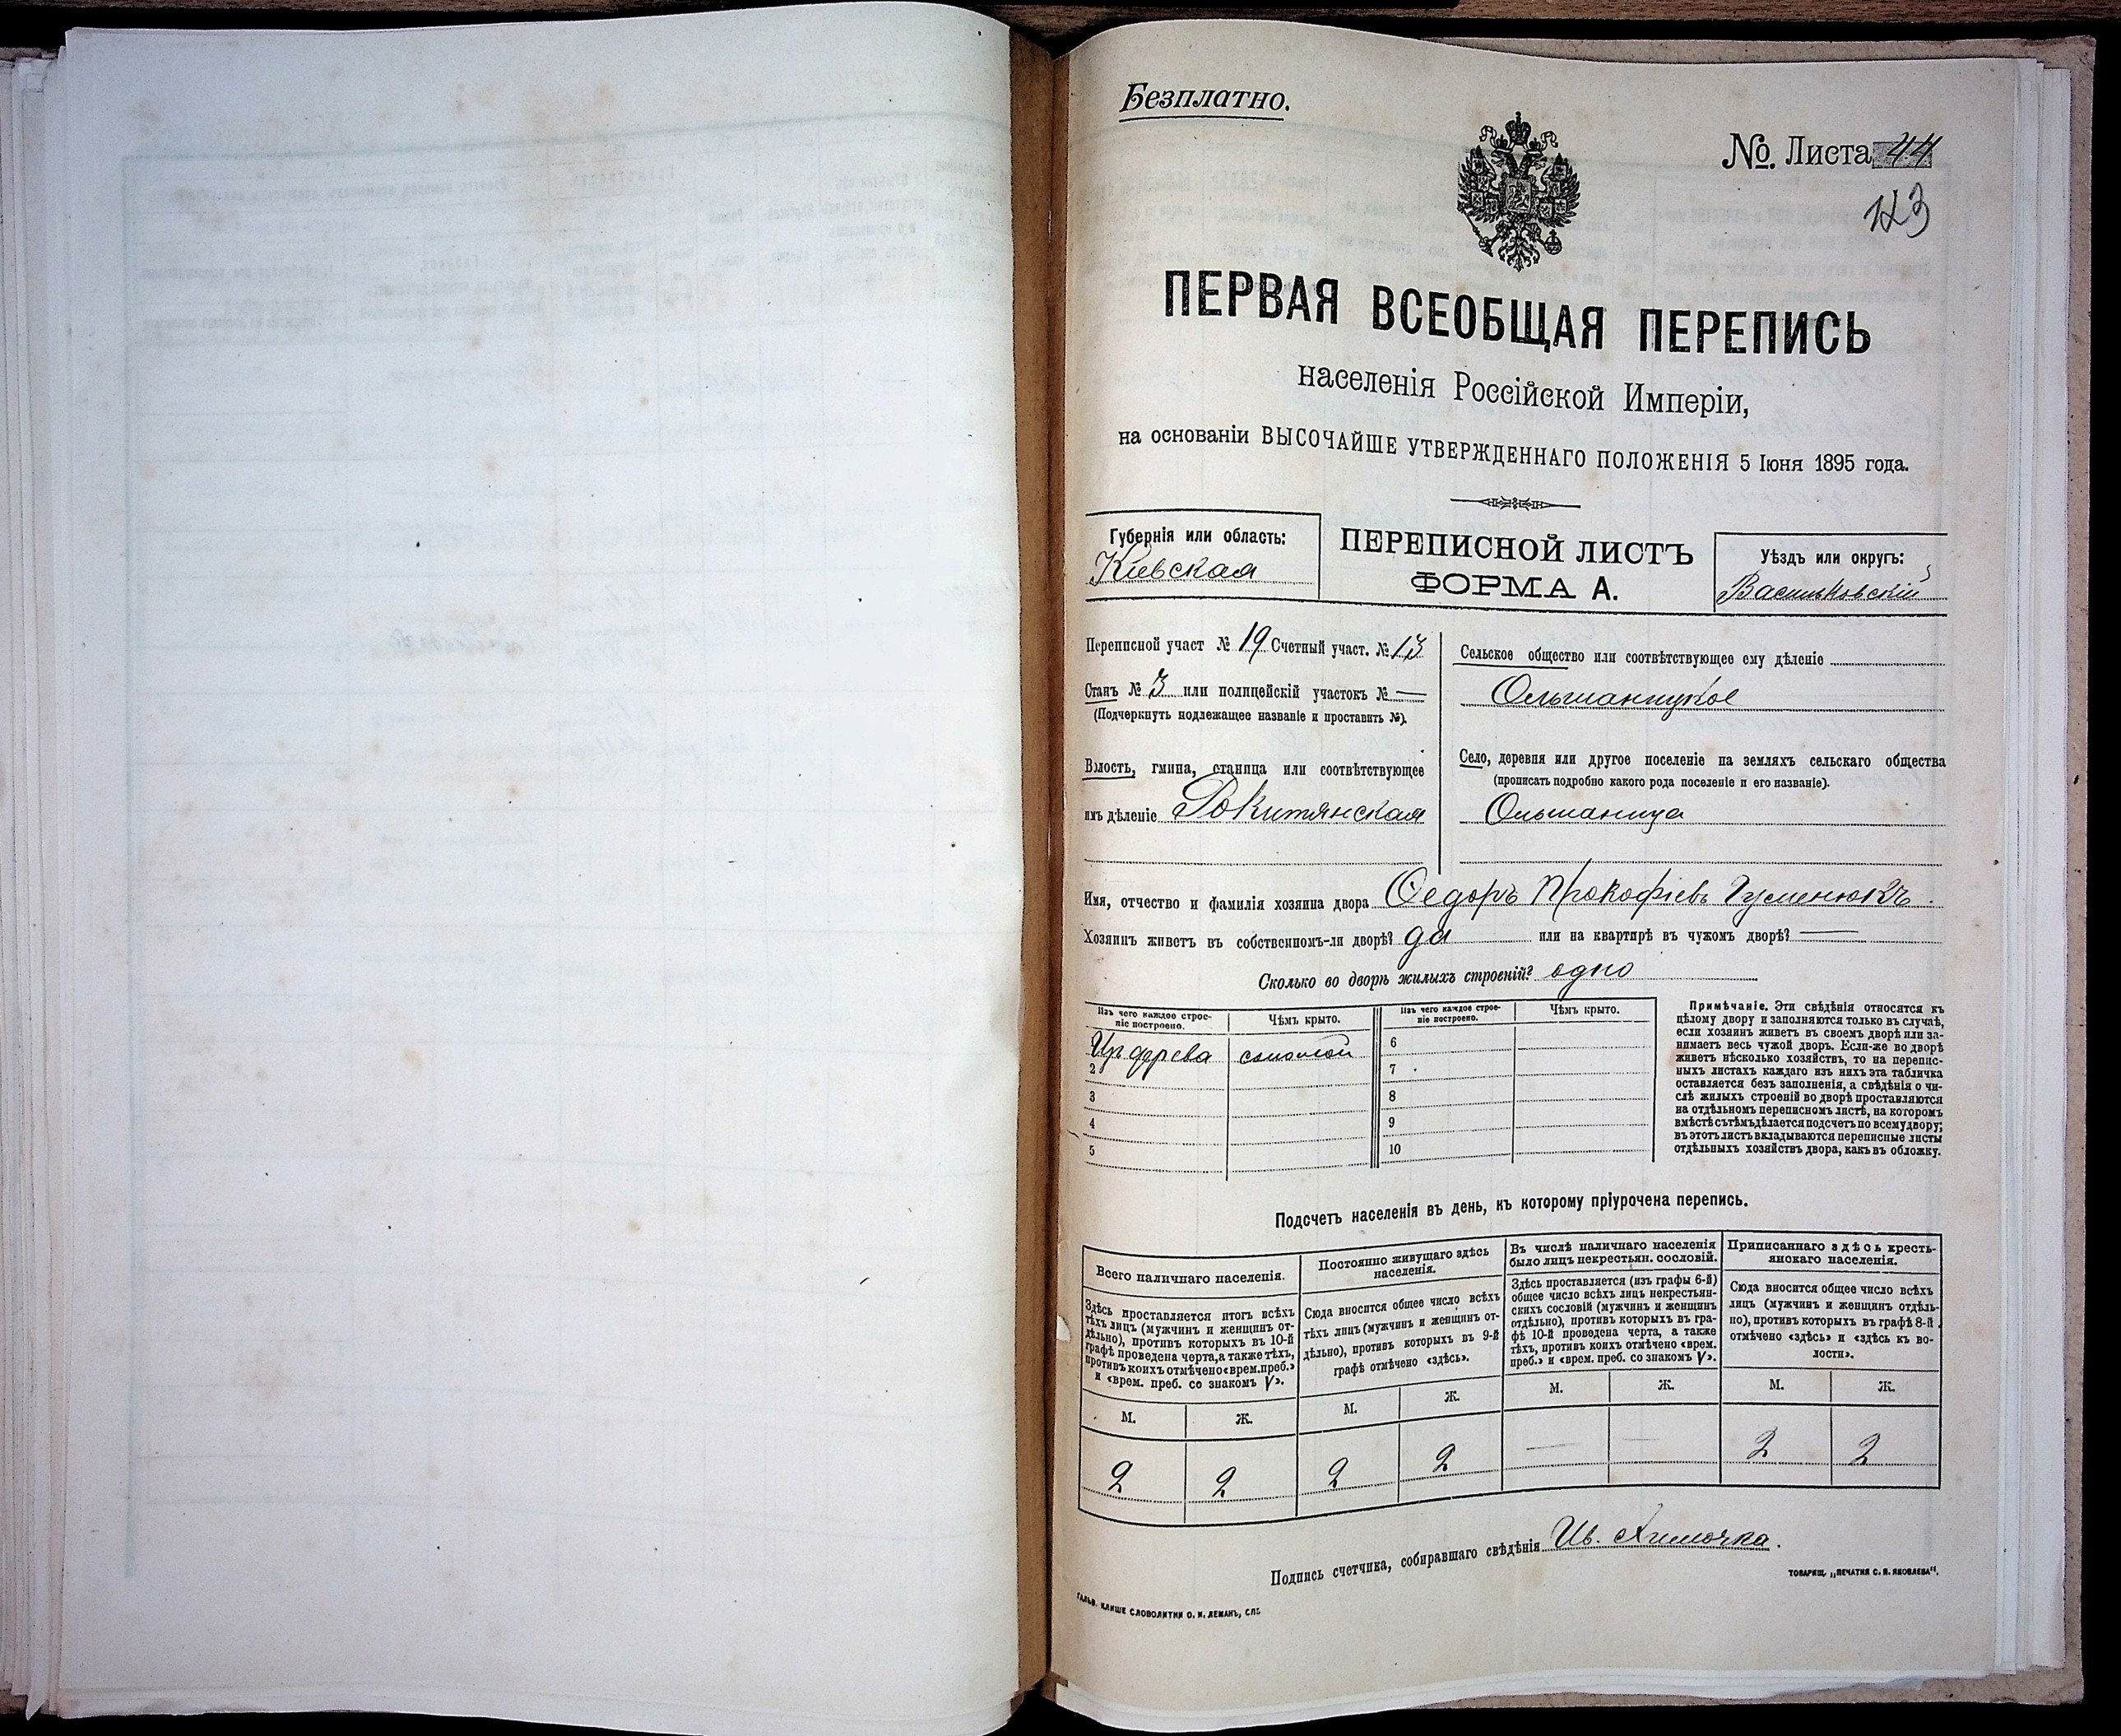 Безплатно.
№ Листа 44
123
ПЕРВАЯ ВСЕОБЩАЯ ПЕРЕПИСЬ
населенія Россійской Имперіи,
на основаніи ВЫСОЧАЙШЕ УТВЕРЖДЕННАГО ПОЛОЖЕНІЯ 5 Іюня 1895 года.
Губернія или область:
Кіевская
ПЕРЕПИСНОЙ ЛИСТЪ
ФОРМА А.
Уѣздъ или округъ:
Васильковскій
Переписной участ № 19 Счетный участ. № 13
Станъ № 3 или полицейскій участокъ № —
(Подчеркнуть подлежащее названіе и проставить №).
Волость, гмина, станица или соотвѣтствующее
имъ дѣленіе Рокитянская
Сельское общество или соотвѣтствующее ему дѣленіе
Ольшаницкое
Село, деревня или другое поселеніе на земляхъ сельскаго общества
(прописать подробно какого рода поселеніе и его названіе).
Ольшаница
Имя, отчество и фамилія хозяина двора Ѳедоръ Прокофіевъ Гуменюкъ.
Хозяинъ живетъ въ собственномъ-ли дворѣ? да или на квартирѣ въ чужомъ дворѣ? —
Сколько во дворѣ жилыхъ строеній? одно
Изъ чего каждое строе-
ніе построено.
Чѣмъ крыто.
Изъ чего каждое строе-
ніе построено.
Чѣмъ крыто.
Изъ дерева соломой 6
2 7
3 8
4 9
5 10
Примѣчаніе. Эти свѣдѣнія относятся къ
цѣлому двору и заполняются только въ случаѣ,
если хозяинъ живетъ въ своемъ дворѣ или за-
нимаетъ весь чужой дворъ. Если-же во дворѣ
живетъ нѣсколько хозяйствъ, то на перепис-
ныхъ листахъ каждаго изъ нихъ эта табличка
оставляется безъ заполненія, а свѣдѣнія о чи-
слѣ жилыхъ строеній во дворѣ проставляются
на отдѣльномъ переписномъ листѣ, на которомъ
вмѣстѣ съ тѣмъ дѣлается подсчетъ по всему двору;
въ этотъ листъ вкладываются переписные листы
отдѣльныхъ хозяйствъ двора, какъ въ обложку.
Подсчетъ населенія въ день, къ которому пріурочена перепись.
Всего наличнаго населенія.
Здѣсь проставляется итогъ всѣхъ
тѣхъ лицъ (мужчинъ и женщинъ от-
дѣльно), противъ которыхъ въ 10-й
графѣ проведена черта, а также тѣхъ,
противъ коихъ отмѣчено «врем. преб.»
и «врем. преб. со знакомъ V».
М. Ж.
2 2
Постоянно живущаго здѣсь
населенія.
Сюда вносится общее число всѣхъ
тѣхъ лицъ (мужчинъ и женщинъ от-
дѣльно), противъ которыхъ въ 9-й
графѣ отмѣчено «здѣсь».
М. Ж.
2 2
Въ числѣ наличнаго населенія
было лицъ некрестьян. сословій.
Здѣсь проставляется (изъ графы 6-й)
общее число всѣхъ лицъ некрестьян-
скихъ сословій (мужчинъ и женщинъ
отдѣльно), противъ которыхъ въ гра-
фѣ 10-й проведена черта, а также
тѣхъ, противъ коихъ отмѣчено «врем.
преб.» и «врем. преб. со знакомъ V».
М. Ж.
— —
Приписаннаго здѣсь кресть-
янскаго населенія.
Сюда вносится общее число всѣхъ
лицъ (мужчинъ и женщинъ отдѣль-
но), противъ которыхъ въ графѣ 8-й
отмѣчено «здѣсь» и «здѣсь къ во-
лости».
М. Ж.
2 2
Подпись счетчика, собиравшаго свѣдѣнія Ив.
ГАЛЬВ. КЛИШЕ СЛОВОЛИТНИ О. И. ЛЕМАНЪ, СПБ
ТОВАРИЩ. „ПЕЧАТНЯ С. П. ЯКОВЛЕВА“.